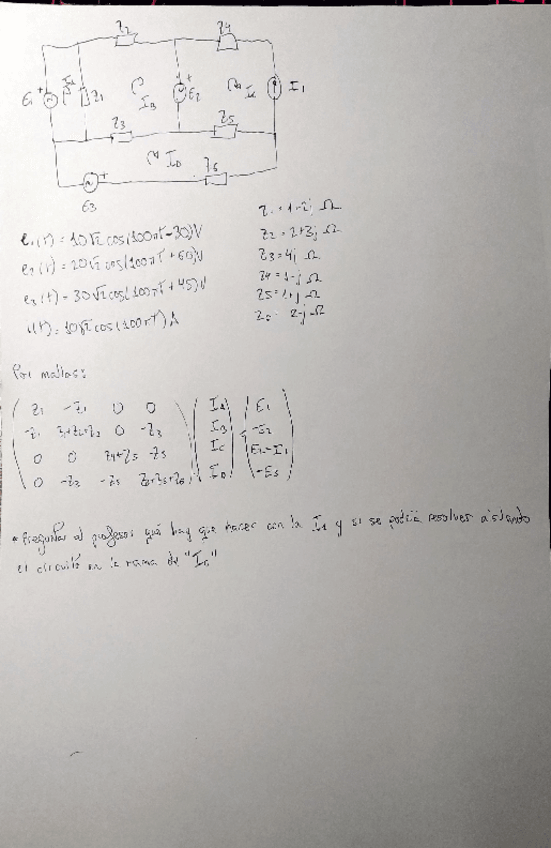 Z2 Z4
E1 + IA Z1 IB + E2 IC I1
Z3 Z5
ID Z6
+
E3
e1(t) = 10√2 cos(100πt-30)V
e2(t) = 20√2 cos(100πt+60)V
e3(t) = 30√2 cos(100πt+45)V
i(t) = 10√2 cos(100πt) A
Z1 = 1-2j Ω
Z2 = 2+3j Ω
Z3 = 4j Ω
Z4 = 1-j Ω
Z5 = 1+j Ω
Z6 = 2-j Ω
Por mallas:
Z1 -Z1 0 0 IA E1
-Z1 Z1+Z2+Z3 0 -Z3 IB -E2
0 0 Z4+Z5 -Z5 IC E2-I1
0 -Z3 -Z5 Z3+Z5+Z6 ID -E3
* Preguntar al profesor qué hay que hacer con la I1 y si se podría resolver aislando
el circuito en la rama de "IC"